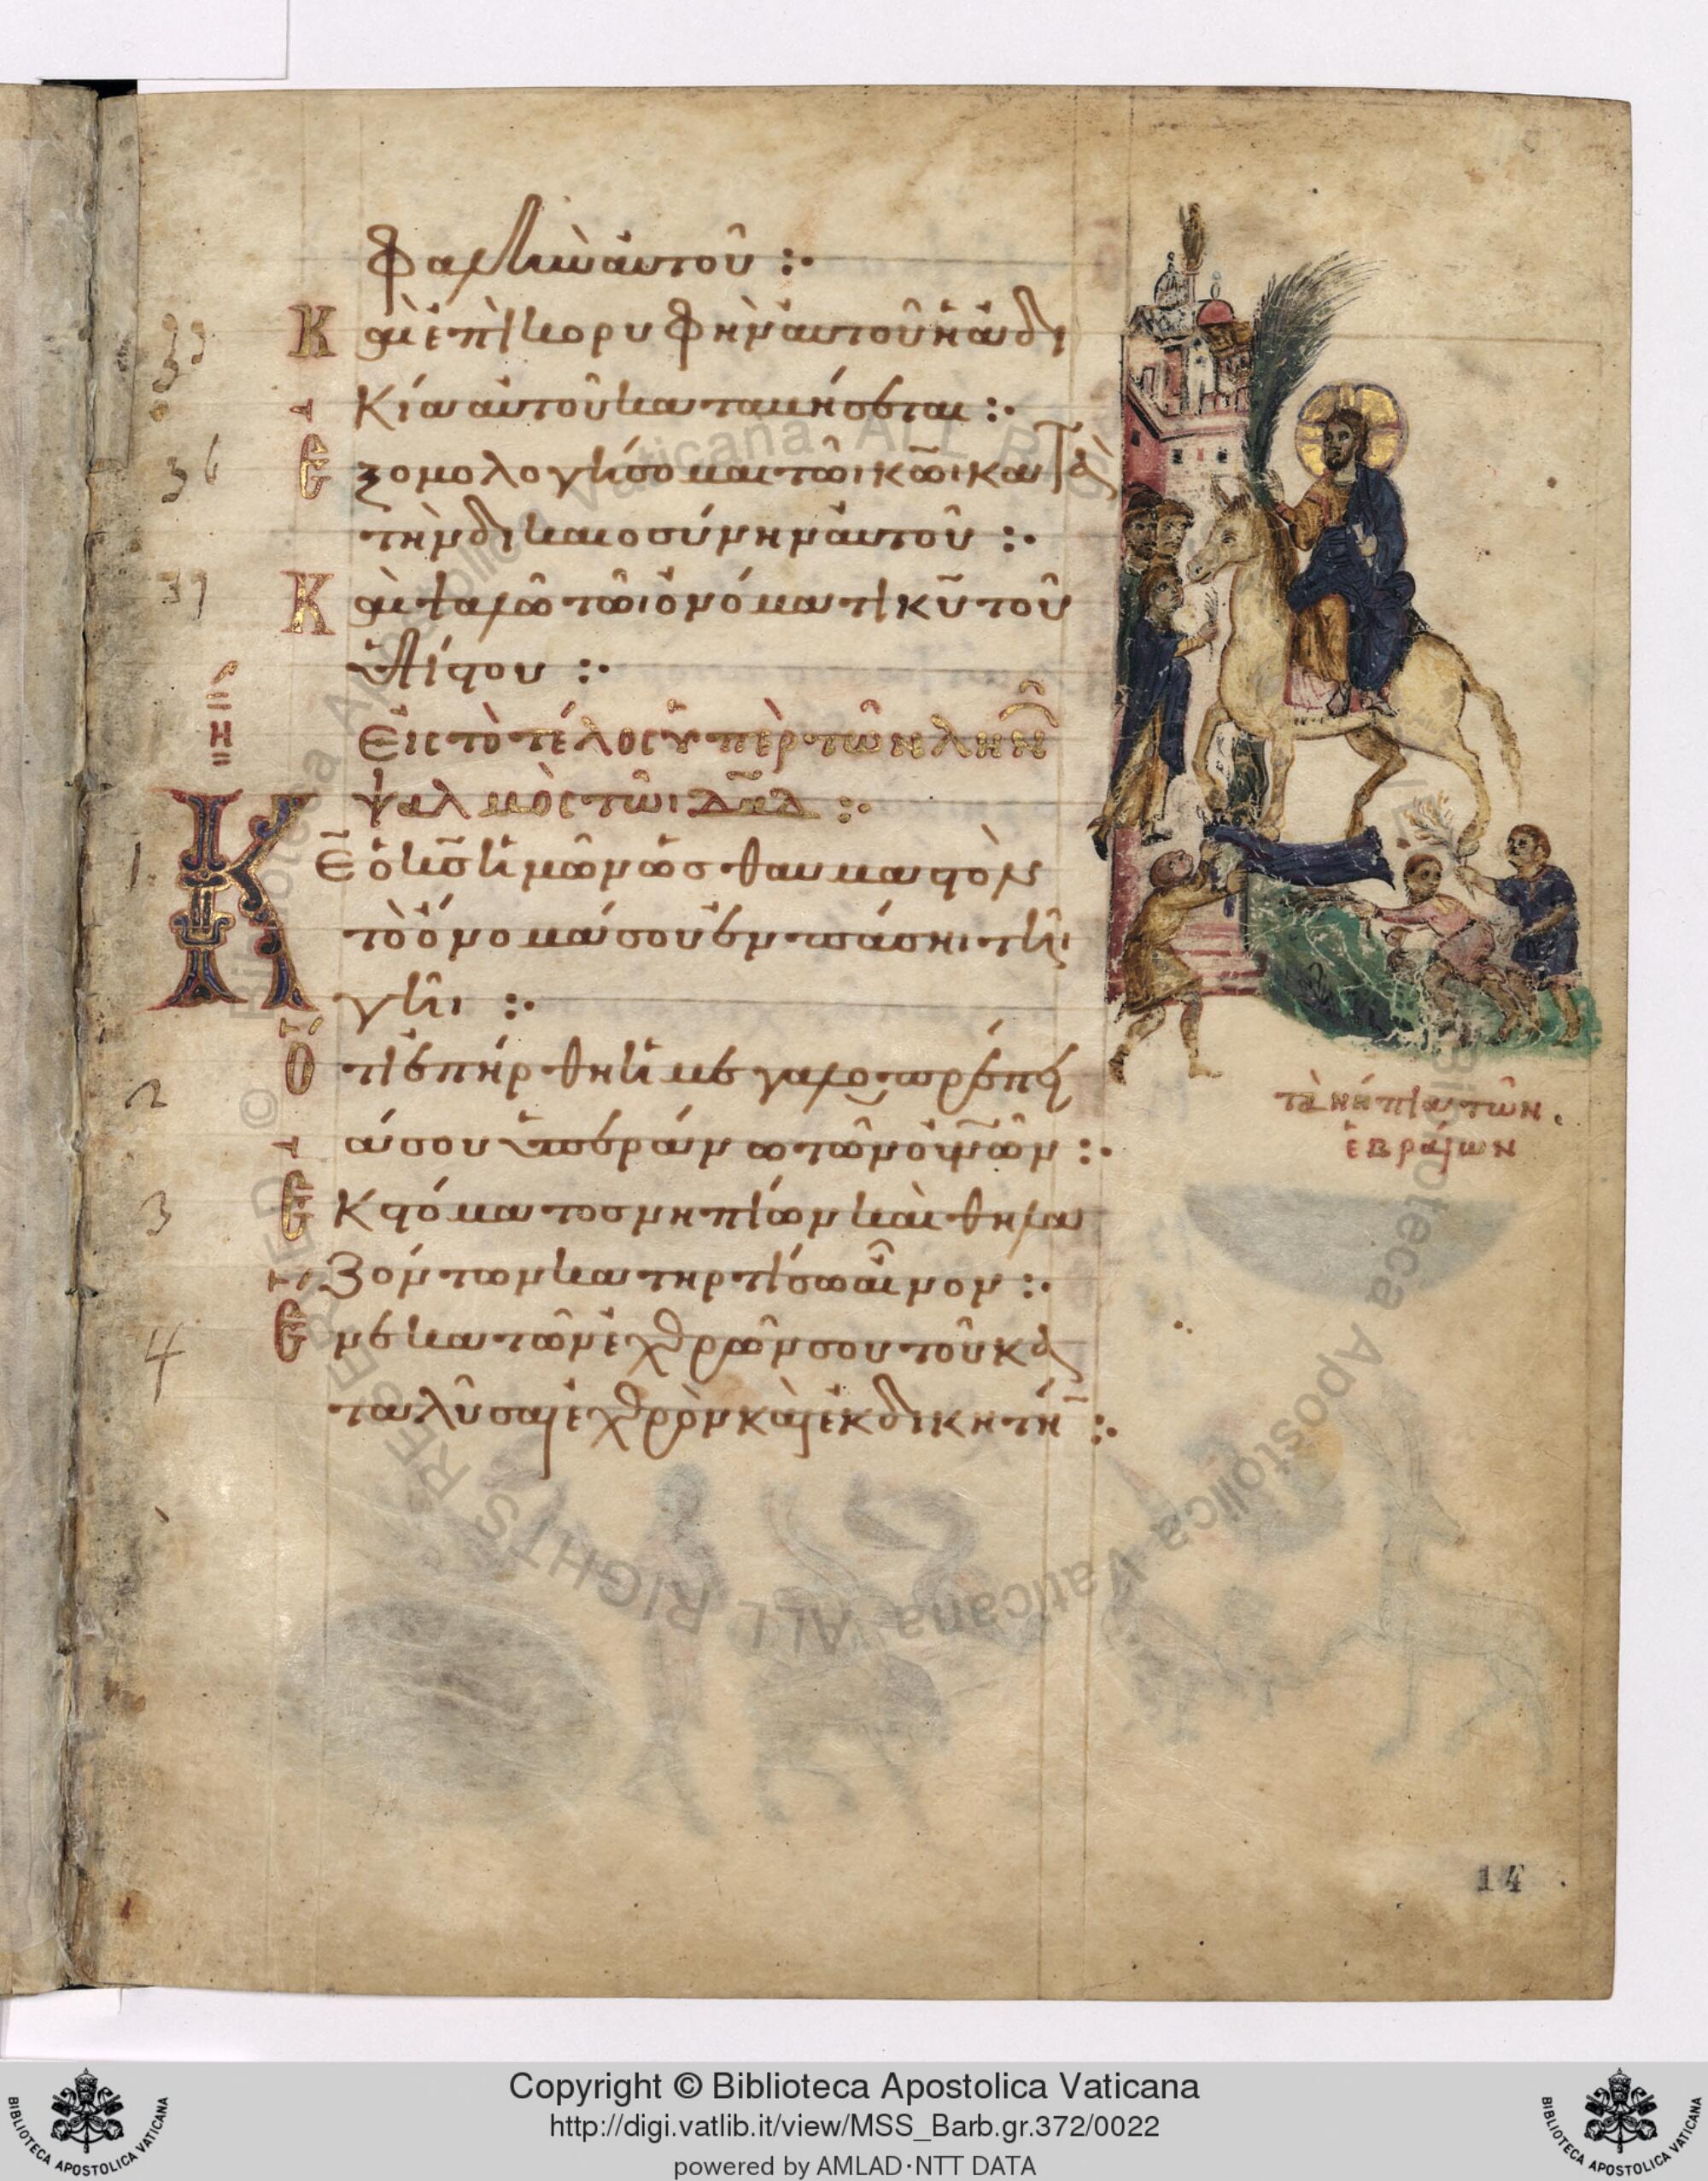 φαλὴν ἀυτοῦ :·
Καὶ ἐπὶ κορυφὴν ἀυτοῦ ἡ ἀδι
κία ἀυτοῦ καταβήσεται :·
Ἐξομολογήσομαι τῶι κῶι κατὰ
τὴν δικαιοσύνην ἀυτοῦ :·
Καὶ ψαλῶ τῶι ὀνόματι κυ τοῦ
ὑψίστου :·
Εἰς τὸ τέλος ὑπὲρ τῶν ληνῶν
ψαλμὸς τῶι δαδ :·
Κε ὁ κς ἡμῶν ὡς θαυμαστὸν
τὸ ὄνομά σου ἐν πάσηι τῆι
γῆι :·
Ὅτι ἐπήρθη ἡ μεγαλοπρέπει
ά σου ὑπεράνω τῶν οὐνῶν :·
Ἐκ στόματος νηπίων καὶ θηλα
ζόντων κατηρτίσω αἶνον :·
Ἕνεκα τῶν ἐχθρῶν σου τοῦ κα
ταλῦσαι ἐχθρὸν καὶ ἐκδικητήν :·
τὰ νήπια τῶν
ἑβραίων
η
1
2
3
4
14
© Biblioteca Apostolica Vaticana ALL RIGHTS RESERVED
Copyright © Biblioteca Apostolica Vaticana
http://digi.vatlib.it/view/MSS_Barb.gr.372/0022
powered by AMLAD·NTT DATA
BIBLIOTECA APOSTOLICA VATICANA
BIBLIOTECA APOSTOLICA VATICANA